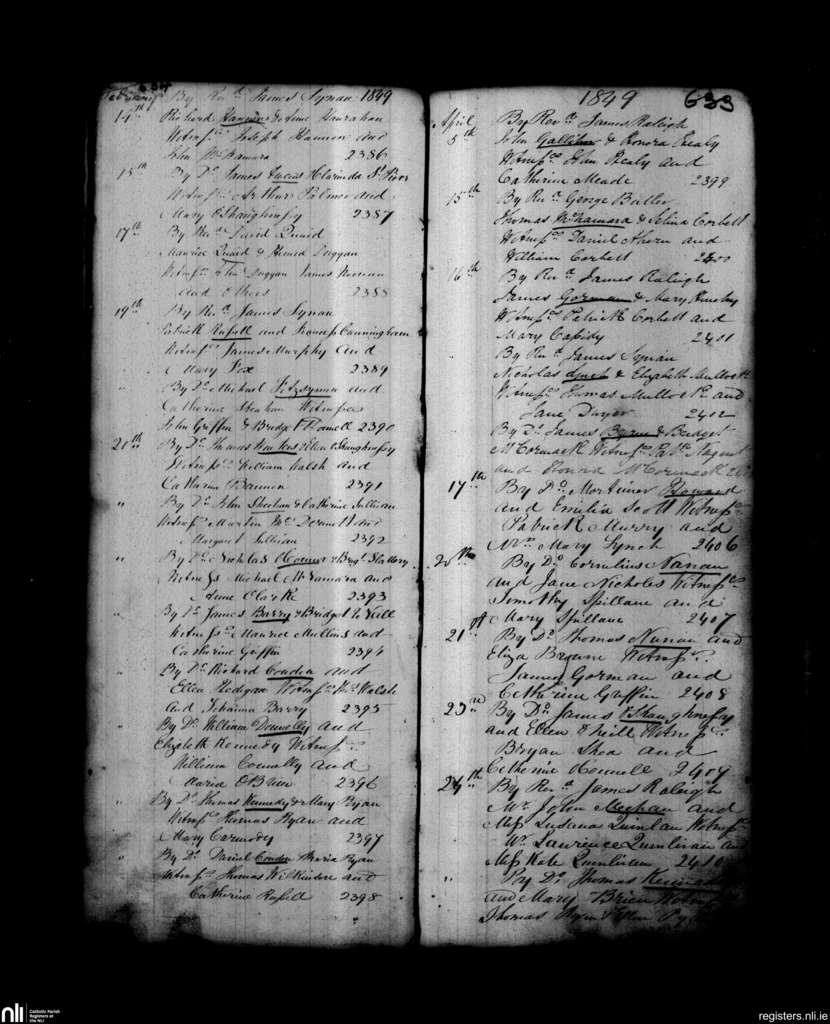 634
February By Revd James Synan 1849
14th Richard Hannon & Anne Hanrahan
Witnesses Joseph Hannon and
John McNamara 2386
15th By Do James Lucas & Clarinda
Witnesses Arthur Palmer and
Mary O'Shaughnessy 2387
17th By Revd David Quaid
Maurice Quaid & Duggan
Witnesses John Duggan James Noonan
and others 2388
19th By Revd James Synan
Patrick Russell and Frances Cunningham
Witnesses James Murphy and
Mary Fox 2389
" By Do Michael and
Catherine Shea Witnesses
John Griffin & Bridget 2390
20th By Do Thomas & Ellen O'Shaughnessy
Witnesses William Walsh and
Catharine Bannon 2391
" By Do John Sheehan & Catherine Sullivan
Witnesses Martin McDermott and
Margaret Sullivan 2392
" By Do Nicholas & Bridgt Slattery
Witnesses Michael McNamara and
Anne Clarke 2393
" By Do James Barry & Bridget
Witnesses Maurice Mullins and
Catharine Griffin 2394
" By Do Richard Condon and
Ellen Witnesses Walsh
and Johanna Barry 2395
By Do William Donnelly and
Elizabeth Kennedy Witnesses
" William Connelly and
Maria O'Brien 2396
By Do Thomas Kennedy & Mary Ryan
" Witnesses Thomas Ryan and
Mary Carmody 2397
" By Do Daniel Condon & Maria Ryan
Witnesses Thomas Wilkinson and
Catherine Russell 2398
1849 633
April By Revd James Raleigh
5th John & Honora Healy
Witnesses John Healy and
Catherine Meade 2399
15th By Revd George Butler
Thomas McNamara & Selina Corbett
Witnesses Daniel Ahern and
William Corbett 2400
16th By Revd James Raleigh
James Gorman & Mary
Witnesses Patrick Corbett and
Mary Cassidy 2401
By Revd James Synan
Nicholas Lynch & Elizabeth Mullock
Witnesses Thomas Mullock and
Jane Dwyer 2402
By Do James Byrne & Bridget
McCormack Witnesses Patk Nugent
and Honora McCormack
17th By Do Mortimer Howard
and Emilia Scott Witnesses
Patrick Murry and
Mrs Mary Lynch 2406
20th By Do Cornelius Nanan
and Jane Nicholes Witnesses
Timothy Spillane and
Mary Spillane 2407
21st By Do Thomas Nunan and
Eliza Browne Witnesses
James Gorman and
Catherine Griffin 2408
23rd By Do James O'Shaughnessy
and Ellen O'Neill Witnesses
Bryan Shea and
Catherine Connell 2409
24th By Revd James Raleigh
Mr John Meehan and
Miss Susana Quinlan Witnesses
Mr Lawrence Quinlivan and
Miss Kate Quinlivan 2410
" By Do Thomas
and Mary Brien Witnesses
Thomas Ryan & Ellen
nli Catholic Parish
Registers at
the NLI
registers.nli.ie